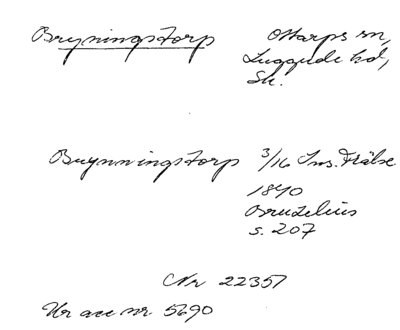 Bryningstorp Ottarps sn,
Luggude hd,
Sk.
Brynningstorp 3/16 Ins. Frälse
1840
Bruzelius
s. 207
Nr 22357
Ur acc nr. 5690